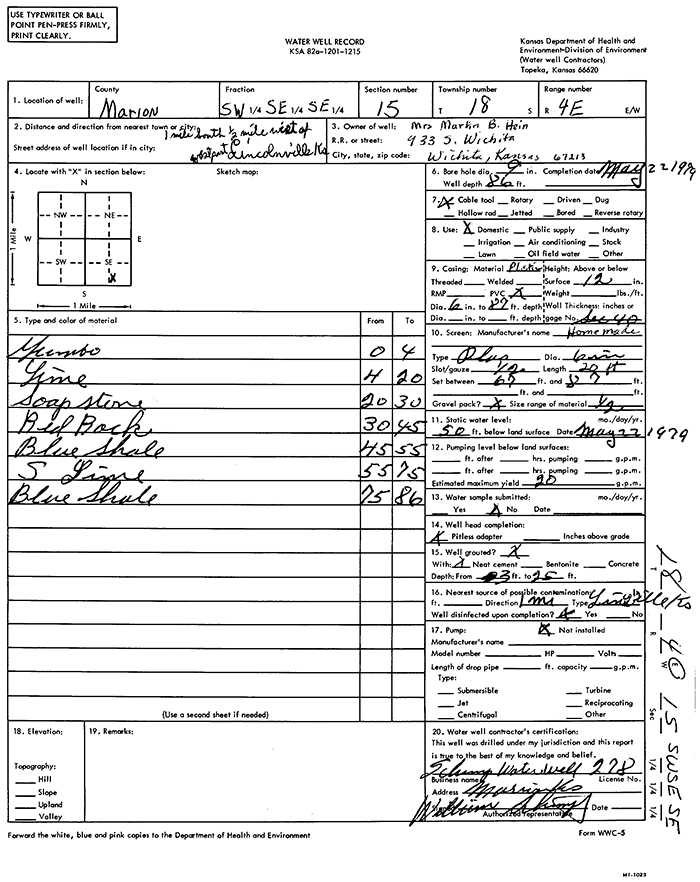 USE TYPEWRITER OR BALL
POINT PEN-PRESS FIRMLY,
PRINT CLEARLY.
WATER WELL RECORD
KSA 82a-1201-1215
Kansas Department of Health and
Environment-Division of Environment
(Water well Contractors)
Topeka, Kansas 66620
1. Location of well:
County
Marion
Fraction
SW 1/4 SE 1/4 SE 1/4
Section number
15
Township number
T 18 S
Range number
R 4E E/W
2. Distance and direction from nearest town or city:
1 mile South 1/2 mile west of
Street address of well location if in city:
west part Lincolnville Ks
3. Owner of well: Mrs Martin B. Hein
R.R. or street: 933 S. Wichita
City, state, zip code: Wichita, Kansas 67213
4. Locate with "X" in section below:
Sketch map:
N
NW NE
W E
SW SE
X
S
1 Mile
1 Mile
6. Bore hole dia 9 in. Completion date May 22 1979
Well depth 86 ft.
7. X Cable tool Rotary Driven Dug
Hollow rod Jetted Bored Reverse rotary
8. Use: X Domestic Public supply Industry
Irrigation Air conditioning Stock
Lawn Oil field water Other
9. Casing: Material Plastic Height: Above or below
Threaded Welded Surface 12 in.
RMP PVC X Weight lbs./ft.
Dia. 6 in. to 87 ft. depth Wall Thickness: inches or
Dia. in. to ft. depth gage No.
10. Screen: Manufacturer's name Homemade
Type Dia. 6 in
Slot/gauze 1/2 Length 20 ft
Set between 67 ft. and 87 ft.
ft. and ft.
Gravel pack? X Size range of material 1/2
11. Static water level: mo./day/yr.
50 ft. below land surface Date May 22 1979
12. Pumping level below land surfaces:
ft. after hrs. pumping g.p.m.
ft. after hrs. pumping g.p.m.
Estimated maximum yield 20 g.p.m.
13. Water sample submitted: mo./day/yr.
Yes X No Date
14. Well head completion:
X Pitless adapter Inches above grade
15. Well grouted? X
With: X Neat cement Bentonite Concrete
Depth: From 3 ft. to 25 ft.
16. Nearest source of possible contamination:
ft. Direction 1 mi Type
Well disinfected upon completion? X Yes No
17. Pump: X Not installed
Manufacturer's name
Model number HP Volts
Length of drop pipe ft. capacity g.p.m.
Type:
Submersible Turbine
Jet Reciprocating
Centrifugal Other
5. Type and color of material From To
Gumbo 0 4
Lime 4 20
Soap stone 20 30
Red Rock 30 45
Blue Shale 45 55
S Lime 55 75
Blue Shale 75 86
(Use a second sheet if needed)
18. Elevation:
Topography:
Hill
Slope
Upland
Valley
19. Remarks:
20. Water well contractor's certification:
This well was drilled under my jurisdiction and this report
is true to the best of my knowledge and belief.
Water Well 278
Business name License No.
Address
Signed Date
Authorized representative
Forward the white, blue and pink copies to the Department of Health and Environment
Form WWC-5
M1-1023
T 18
R 4 E W
Sec 15
SW SE SE
1/4 1/4 1/4